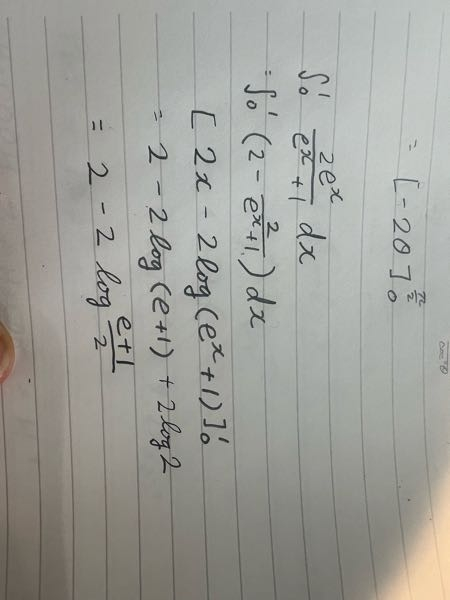 = [-2θ]₀^{π/2}
∫₀¹ 2eˣ/(eˣ+1) dx
= ∫₀¹ (2 - 2/(eˣ+1)) dx
[2x - 2log(eˣ+1)]₀¹
= 2 - 2log(e+1) + 2log2
= 2 - 2log (e+1)/2